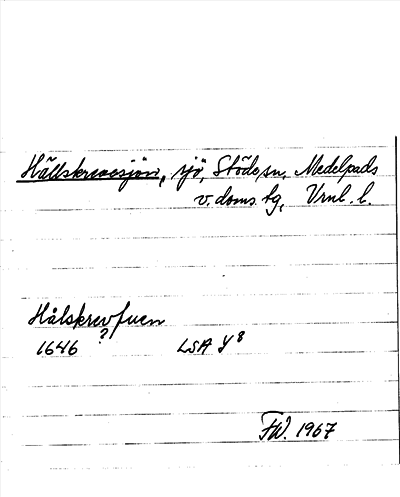 Hällskrevsjön, sjö, Stöde sn, Medelpads
v. doms. tg, Vrnl. l.
Hålskrevfuen
?
1646 LSA Y 8
FW. 1967